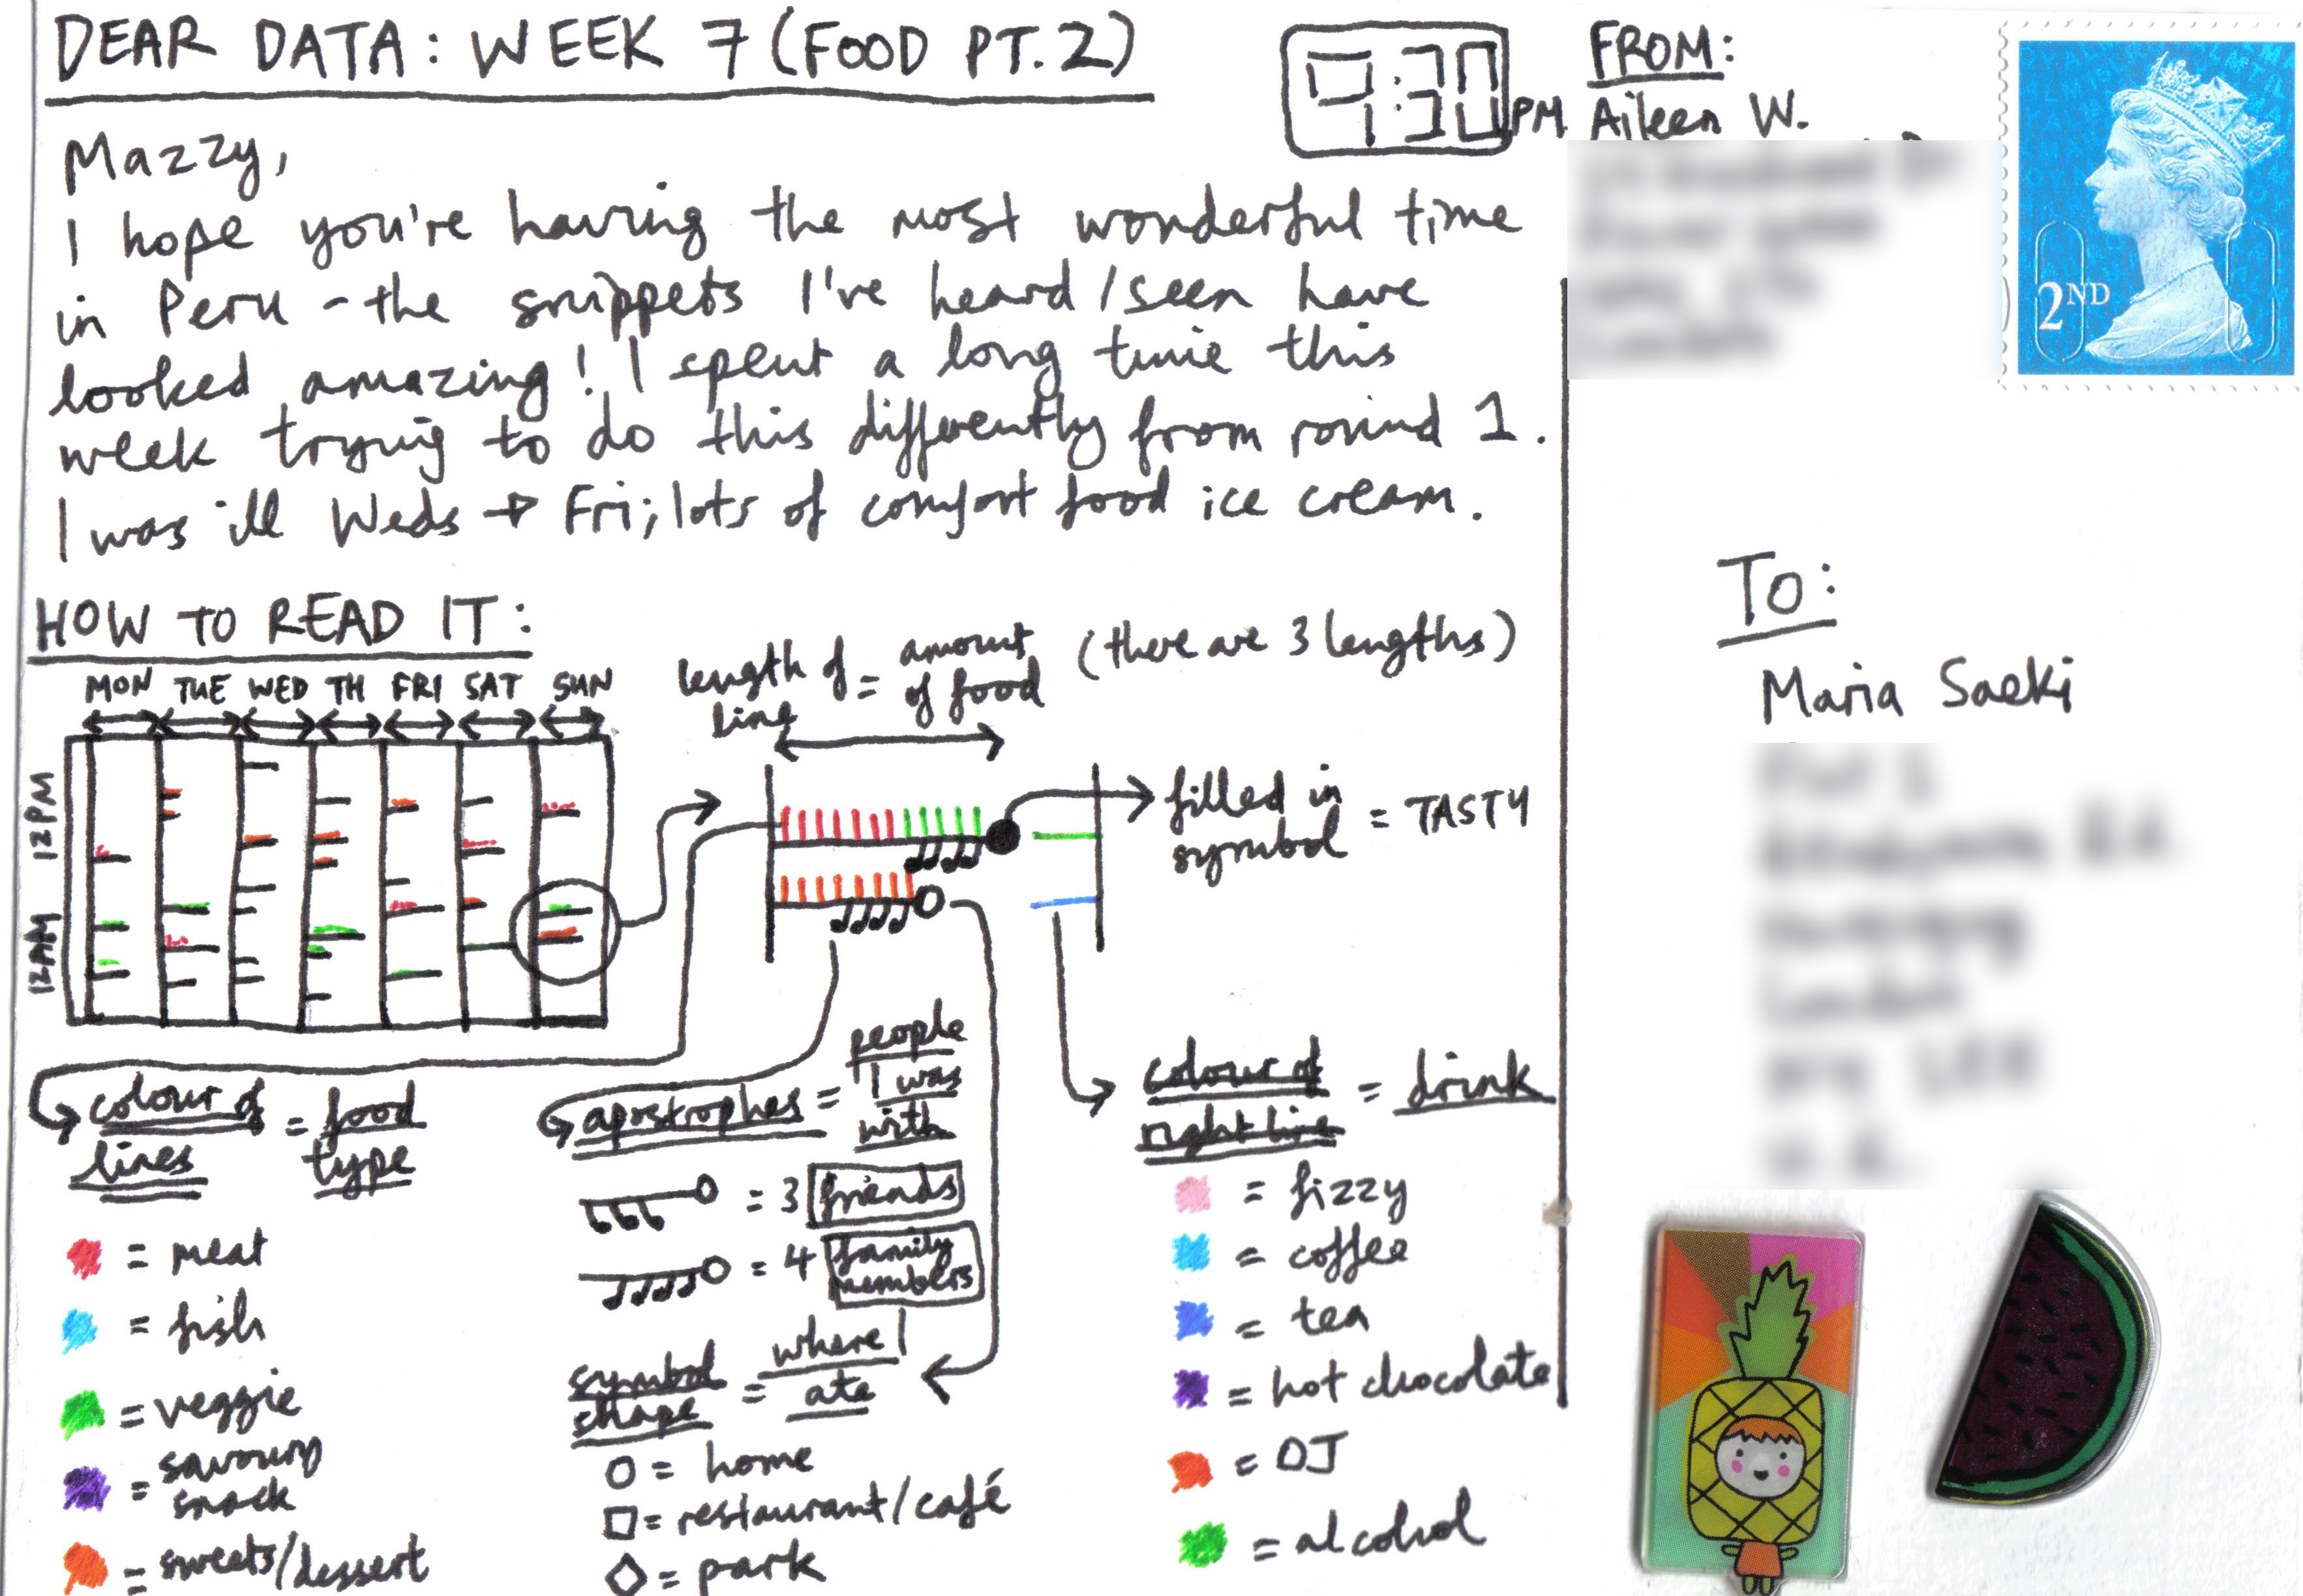 DEAR DATA: WEEK 7 (FOOD PT.2)
9:30 PM
Mazzy,
I hope you're having the most wonderful time
in Peru - the snippets I've heard/seen have
looked amazing! I spent a long time this
week trying to do this differently from round 1.
I was ill Weds → Fri; lots of comfort food ice cream.
HOW TO READ IT:
MON TUE WED TH FRI SAT SUN
12PM
12AM
length of line = amount of food (there are 3 lengths)
filled in symbol = TASTY
colour of lines = food type
= meat
= fish
= veggie
= savoury snack
= sweets/dessert
apostrophes = people I was with
= 3 friends
= 4 family members
symbol shape = where I ate
= home
= restaurant/café
= park
colour of right line = drink
= fizzy
= coffee
= tea
= hot chocolate
= OJ
= alcohol
FROM:
Aileen W.
2ND
TO:
Maria Saeki